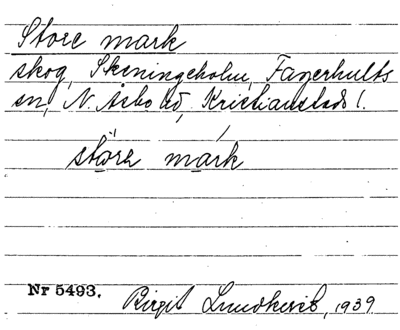 Store mark
skog, Skeningeholm, Fagerhults
sn, N. Åsbo hd, Kristianstads l.
störe mark
Nr 5493.
Birgit Lundkvist, 1939